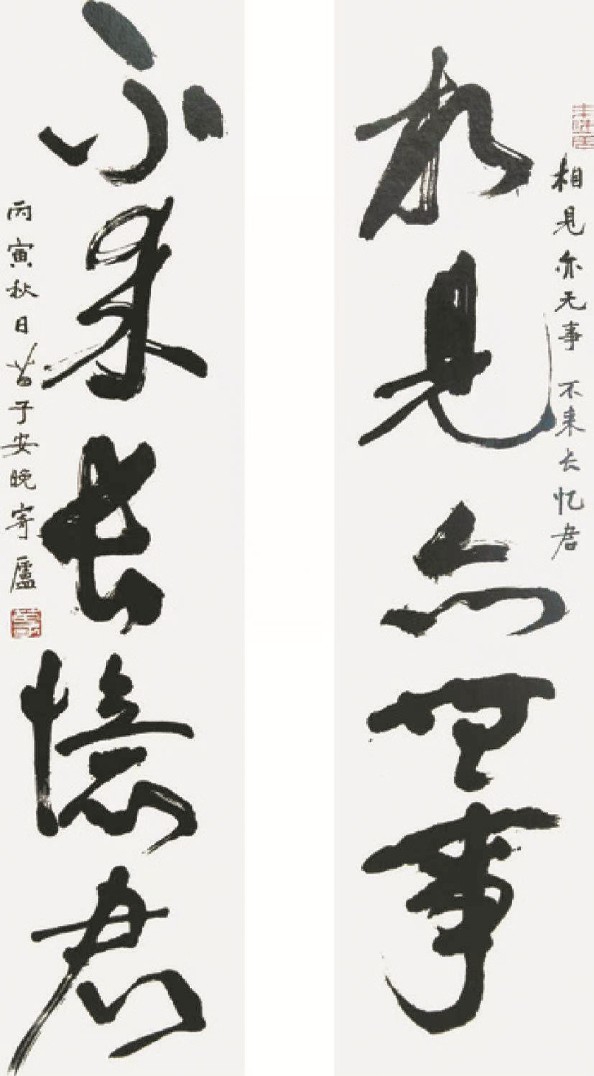 相見亦無事
相見亦无事 不来长忆君
不来长憶君
丙寅秋日苗子安晚寄廬